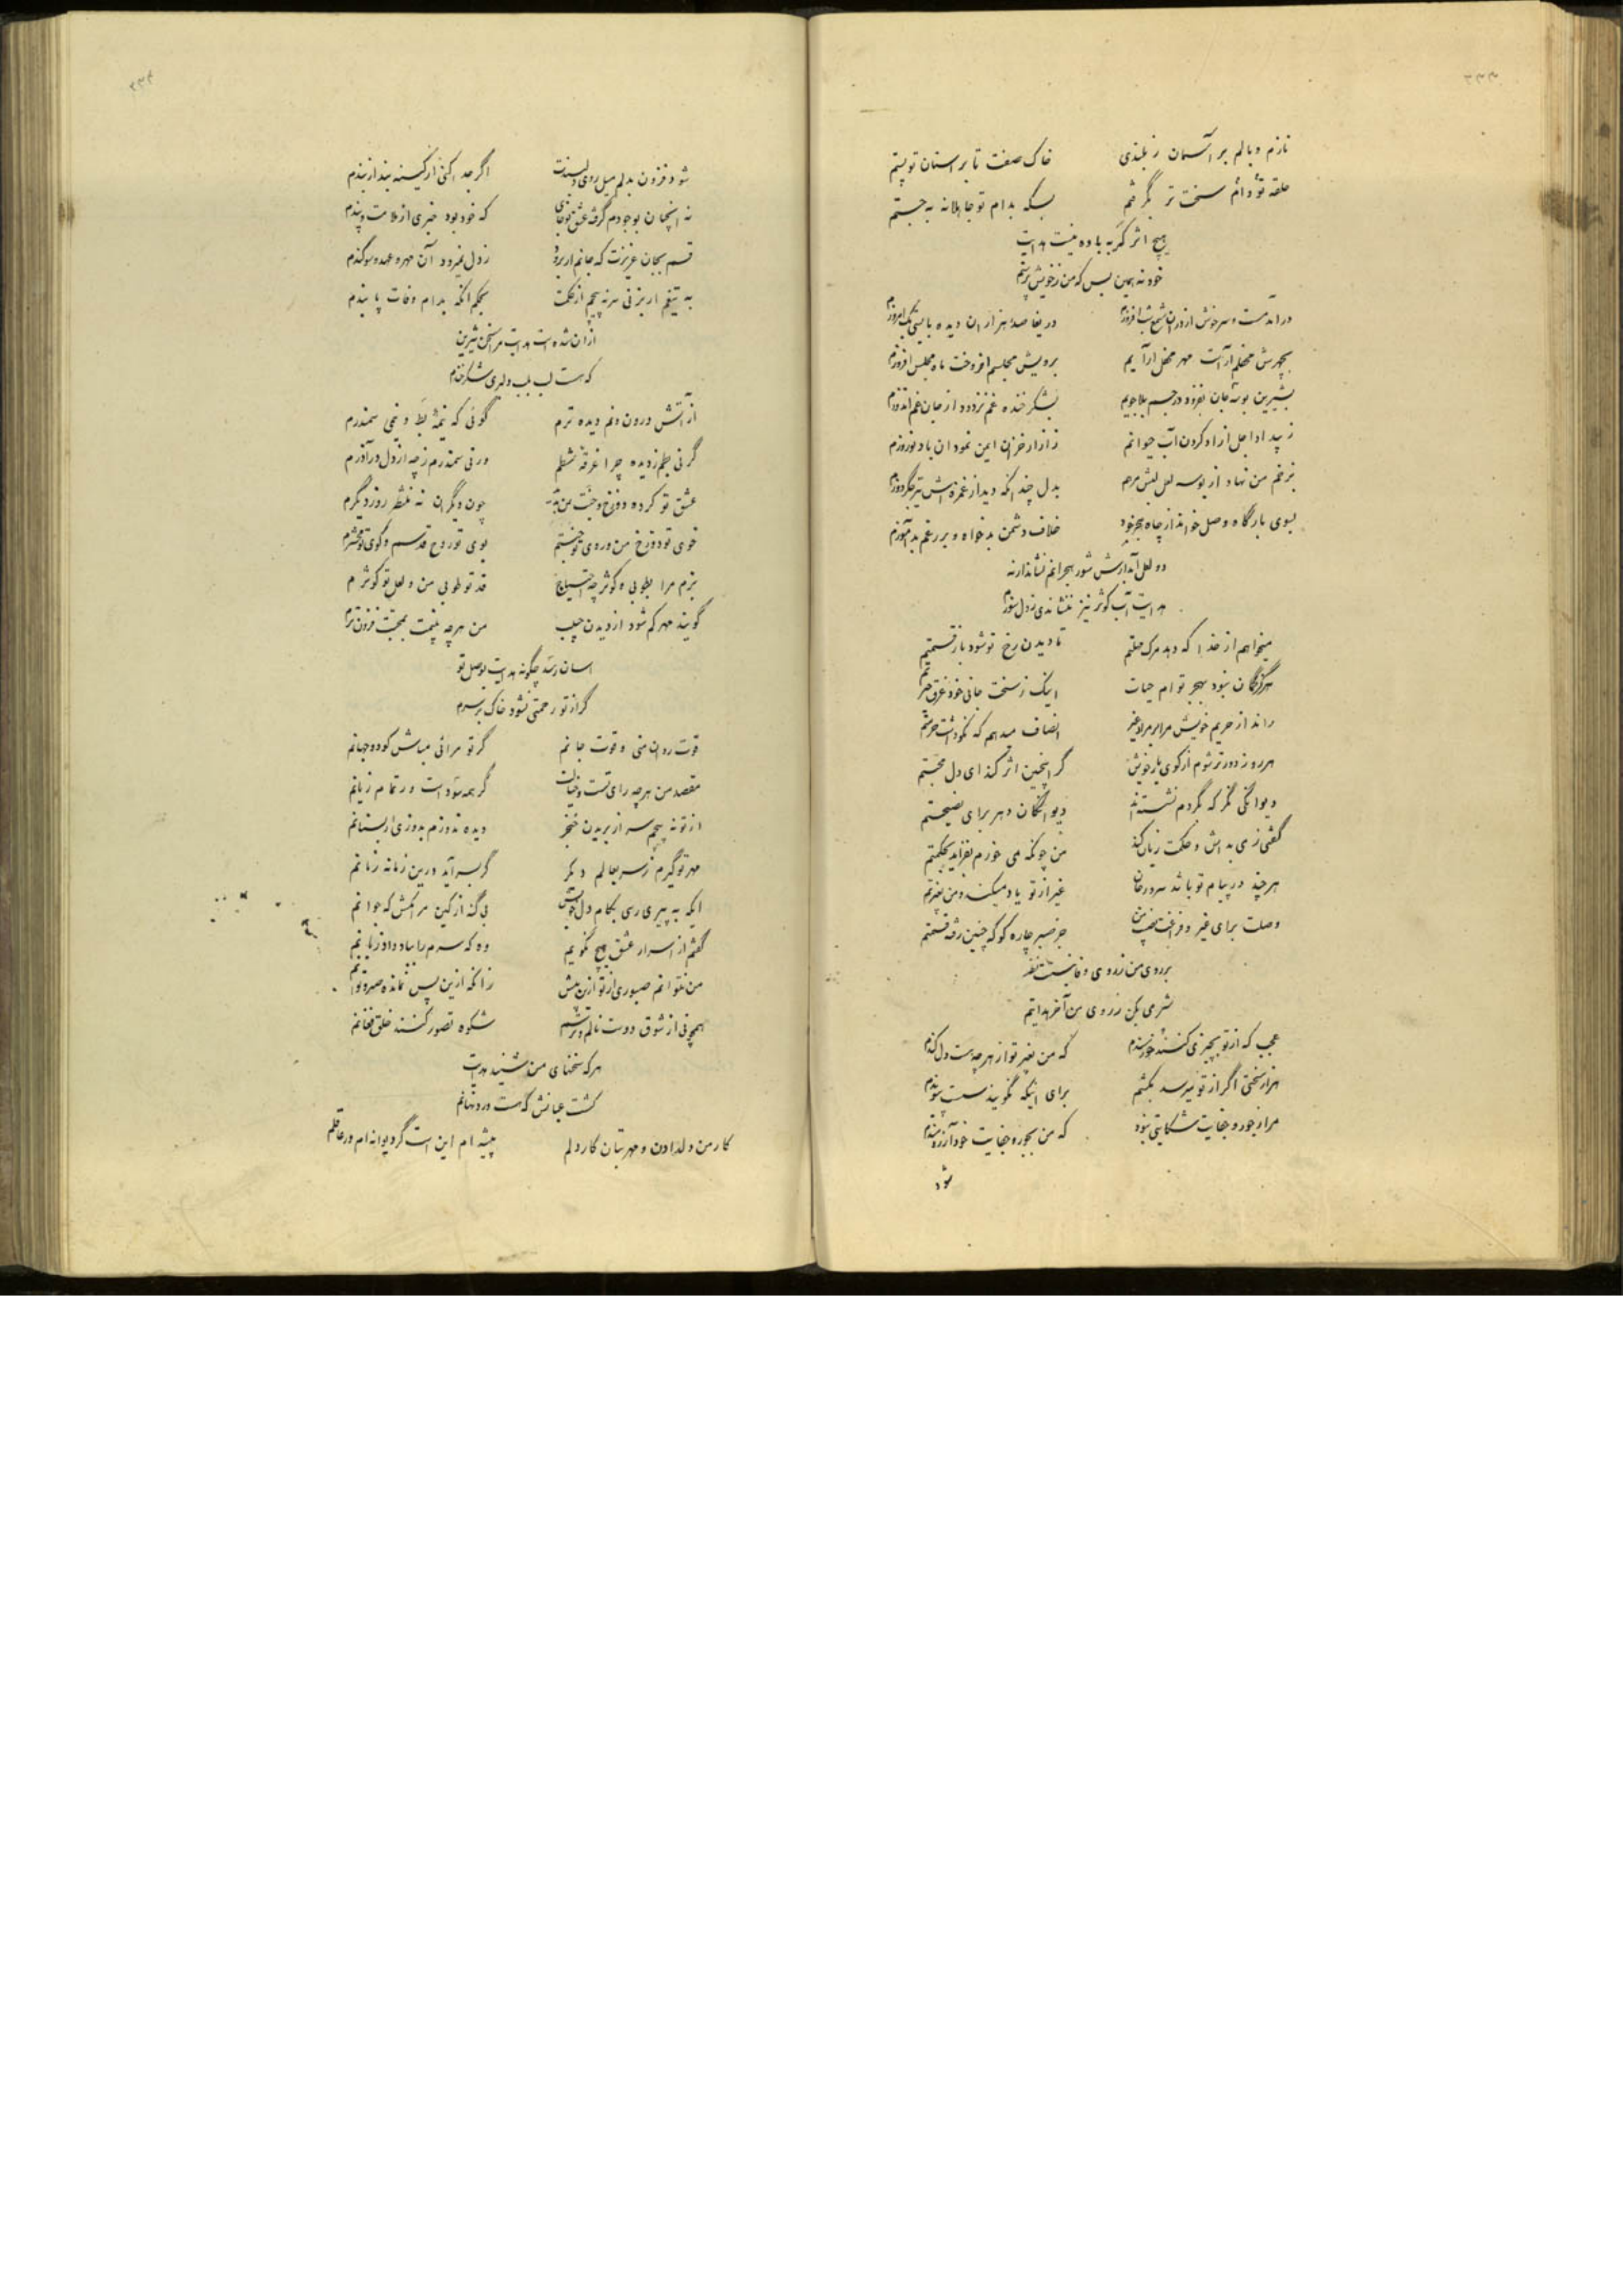 ۳۳۳
نازم و بالم بر آسمان ز بلندی خاک صفت تا بر استان تو پستم
حلقه تو دائم سخت تر بگر فتم بسکه بدام تو جاهلانه بجستم
هیچ اثر گر به باده نیست هدایت
خود نه همین بس که من ز خویش برستم
در آمد مست و سرخوش از در آن شمع شب افروزم دریغا صد هزاران دیده بایستی بک امروزم
بچهرش محفلم آراست مهر محفل آرایم برویش مجلسم افروخت ماه مجلس افروزم
بشیرین بوسه جان بفزود در جسم بلاجویم بشکر خنده غم بزدود از جان غم اندوزم
ز پید اد اجل ازاد کردن آب حیوانم ز ازار خزان ایمن نمود ان باد نوروزم
بزخم من نهاد از بوسه لعل لبش مرهم بدل چند آنکه دید از غمزه اش تیر جگر دوزم
بسوی بارگاه وصل خواند از چاه هجر خود خلاف دشمن بدخواه و بر رغم بد آموزم
دو لعل آبدارش شور هجرانم نشاند ارنه
هدایت آب کوثر نیز ننشاندی ز دل سوزم
میخواهم از خدا که دهد مرک مهلتم تا دیدن رخ تو شود باز قسمتم
هرگز گمان نبود بهجر توام حیات اینک ز سخت جانی خود غرق
راند از حریم خویش مرا بر مراد غیر انصاف میدهم که نکو داشت حرمتم
هر روز دورتر شوم از کوی یار خویش گر اینچنین اثر کند ای دل محبتم
دیوانگی نگر که بگردم نشسته اند دیوانگان دهر برای نصیحتم
گفتی ز می به اش و حکمت زیان کند من چونکه می خورم بفزاید بحکمتم
هر چند در پیام تو باشد سرور جان غیر از تو یاد میکند و من بغیرتم
وصلت برای غیر و فراقت نصیب من جز صبر چاره کو که چنین رفته قسمتم
بر روی من ز روی وفا نیستت نظر
شرمی بکن ز روی من آخر هدایتم
عجب که از تو بچیزی کنند خورسندم که من بغیر تو از هر چه هست دل کندم
هزار سختی اگر از تو میرسد بکشم برای اینکه نگویند سست پیوندم
مرا ز جور و جفایت شکایتی نبود که من بجور و جفایت خود آرزومندم
شود
۳۳۴
شود فزون بدلم میل روی دلبندت اگر جدا کنی از کینه بند از بندم
نه آنچنان بوجودم گرفته عشق تو جای که خود بود خبری از ملامت و پندم
قسم بجان عزیزت که جانم ار برود ز دل نمیرود آن مهر و عهد و سوگندم
به تیغم ار بزنی سر نه پیچم از حکمت بحکم آنکه بدام وفات پا بندم
از آن شده است هدایت مرا سخن شیرین
که هست لب بلب دلبری شکر خندم
از آتش درون و نم دیده ترم گوئی که نیمه بط و نیمی سمندرم
گر نی بطم ز دیده چرا غرقه شطم ور نی سمندرم ز چه از دل در آذرم
عشق تو کرده دوزخ و جنت من چون دیگران نه منتظر روز دیگرم
خوی تو دوزخ من و روی تو جنتم بوی تو روح قدسم و کوی تو محشرم
بزم مرا بطوبی و کوثر چه احتیاج قد تو طوبی من و لعل تو کوثرم
گویند مهر کم شود از دیدن حبیب من هر چه بینمت بمحبت فزون ترم
اسان رسد چگونه هدایت بوصل تو
گر از تو رحمتی نشود خاک بر سرم
قوت روان منی و قوت جانم گر تو مرائی مباش گو دو جهانم
مقصد من هر چه رای تست و خیالت گر همه سود است ور تمام زیانم
از تو نه پیچم سر از بریدن خنجر دیده ندوزم بدوزی ار بسنانم
مهر تو گیرم ز سر بعالم دیگر گر بسر آید درین زمانه زمانم
ایکه به پیری رسی بکام دل خویش بی گنه از کین مرا مکش که جوانم
گفتم از اسرار عشق هیچ نگویم وه که سرم را بباد داد زبانم
من نتوانم صبوری از تو ازین بیش زانکه ازین پس نمانده صبر و توانم
همچو نی از شوق دوست نالم و ترسم شکوه تصور کنند خلق فغانم
هر که سخنهای من شنید هدایت
گشت عیانش که هست درد نهانم
کار من دلدادن و مهر بتان کار دلم پیشه ام این است گر دیوانه ام ور عاقلم